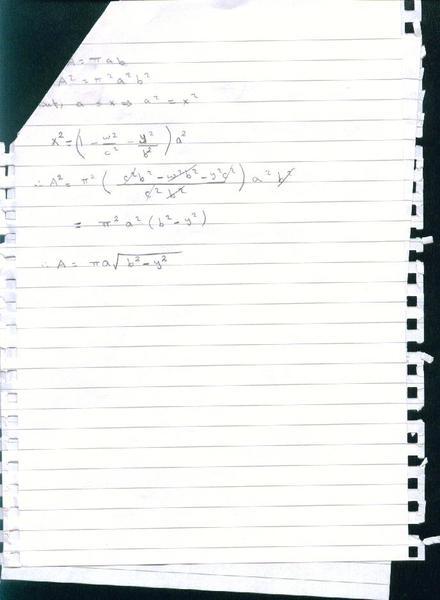 A = πab
A² = π²a²b²
a = x ⇒ a² = x²
x² = (1 - w²/c² - y²/b²) a²
∴ A² = π² ((c²b² - w²b² - y²c²)/(c²b²)) a² b²
= π² a² (b² - y²)
∴ A = πa√(b² - y²)